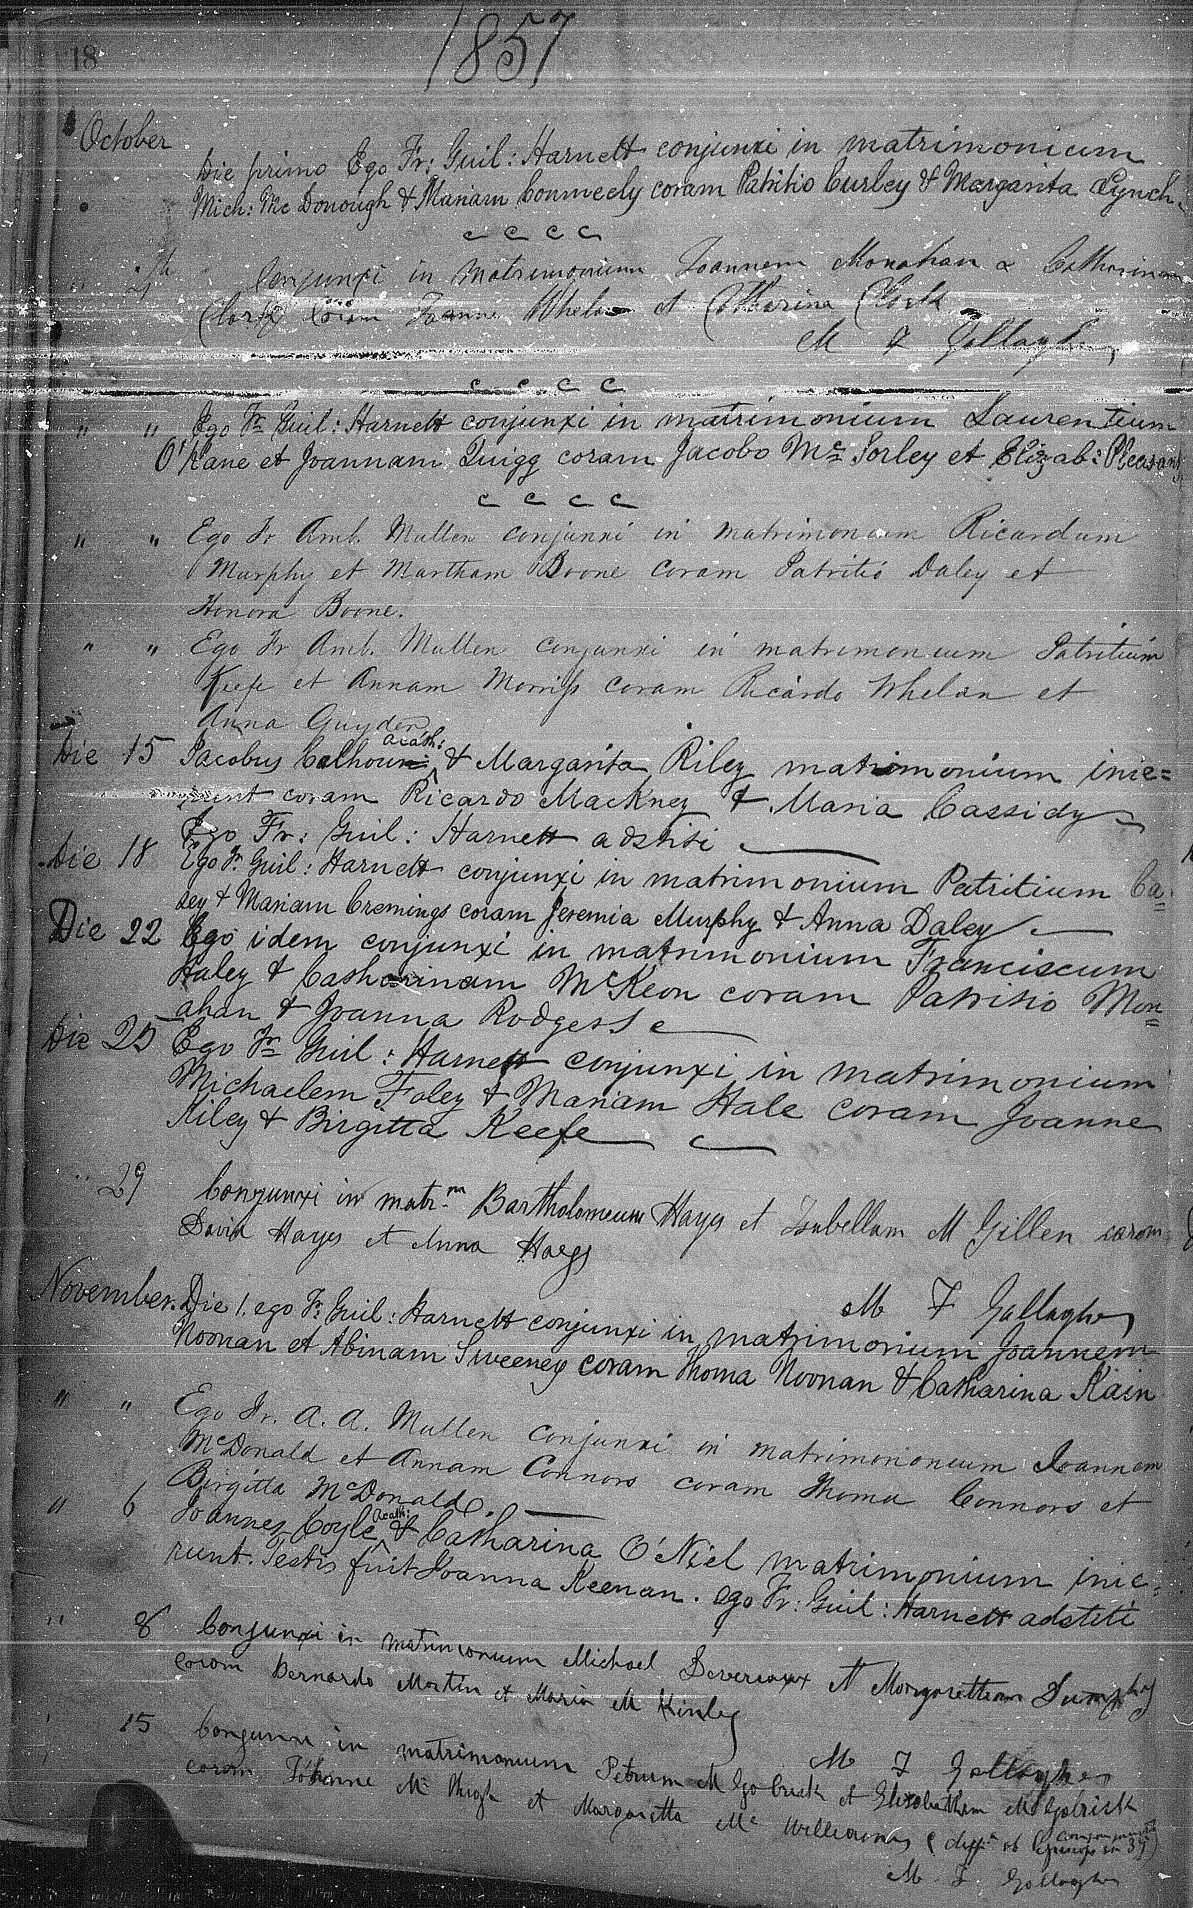 18
1857
October
Die primo Ego Fr: Guil: Harnett conjunxi in matrimonium
Mich: Mc Donough & Mariam Conneely coram Patritio Curley & Margarita Lynch.
" Conjunxi in matrimonium Joannem Monahan & Catharinam
Clark coram Joanne Whelan et Catharina Clark
M F Gallagher
" " Ego Fr Guil: Harnett conjunxi in matrimonium Laurentium
O'Kane et Joannam Quigg coram Jacobo Mc Sorley et Elizab: Pleasants
" " Ego Fr Amb. Mullen conjunxi in matrimonium Ricardum
Murphy et Martham Boone coram Patritio Daley et
Honora Boone.
" " Ego Fr Amb. Mullen conjunxi in matrimonium Patritium
Keefe et Annam Morriss coram Ricardo Whelan et
Anna Guyder
Die 15 Jacobus Calhoun acath: & Margarita Riley matrimonium inie=
runt coram Ricardo Mackney & Maria Cassidy
Ego Fr: Guil: Harnett adstiti
Die 18 Ego Fr. Guil: Harnett conjunxi in matrimonium Patritium Ca=
sey & Mariam Cremings coram Jeremia Murphy & Anna Daley
Die 22 Ego idem conjunxi in matrimonium Franciscum
Haley & Catharinam McKeon coram Patritio Mon=
ahan & Joanna Rodgers
Die 25 Ego Fr Guil: Harnett conjunxi in matrimonium
Michaelem Foley & Mariam Hale coram Joanne
Riley & Birgitta Keefe
" 29 Conjunxi in matr.m Bartholomeum Hays et Isabellam M Gillen coram
David Hayes et Anna Hays
M F Gallagher
November. Die 1. ego Fr. Guil: Harnett conjunxi in matrimonium Joannem
Noonan et Abinam Sweeney coram Thoma Noonan & Catharina Kain
" " Ego Fr. A. A. Mullen conjunxi in matrimonium Joannem
McDonald et Annam Connors coram Thoma Connors et
Birgitta McDonald.
" 6 Joannes Coyle Acath: & Catharina O'Niel matrimonium inie=
runt. Testis fuit Joanna Keenan. ego Fr: Guil: Harnett adstiti
" 8 Conjunxi in matrimonium Michael Devereaux et Margarettam Dumphy
coram Bernardo Martin et Maria M Kinley
M F Gallagher
15 Conjunxi in matrimonium Petrum M Golrick et Elizabetham M Golrick
coram Johanne Mc Hugh et Margaretta Mc Williams
M F Gallagher